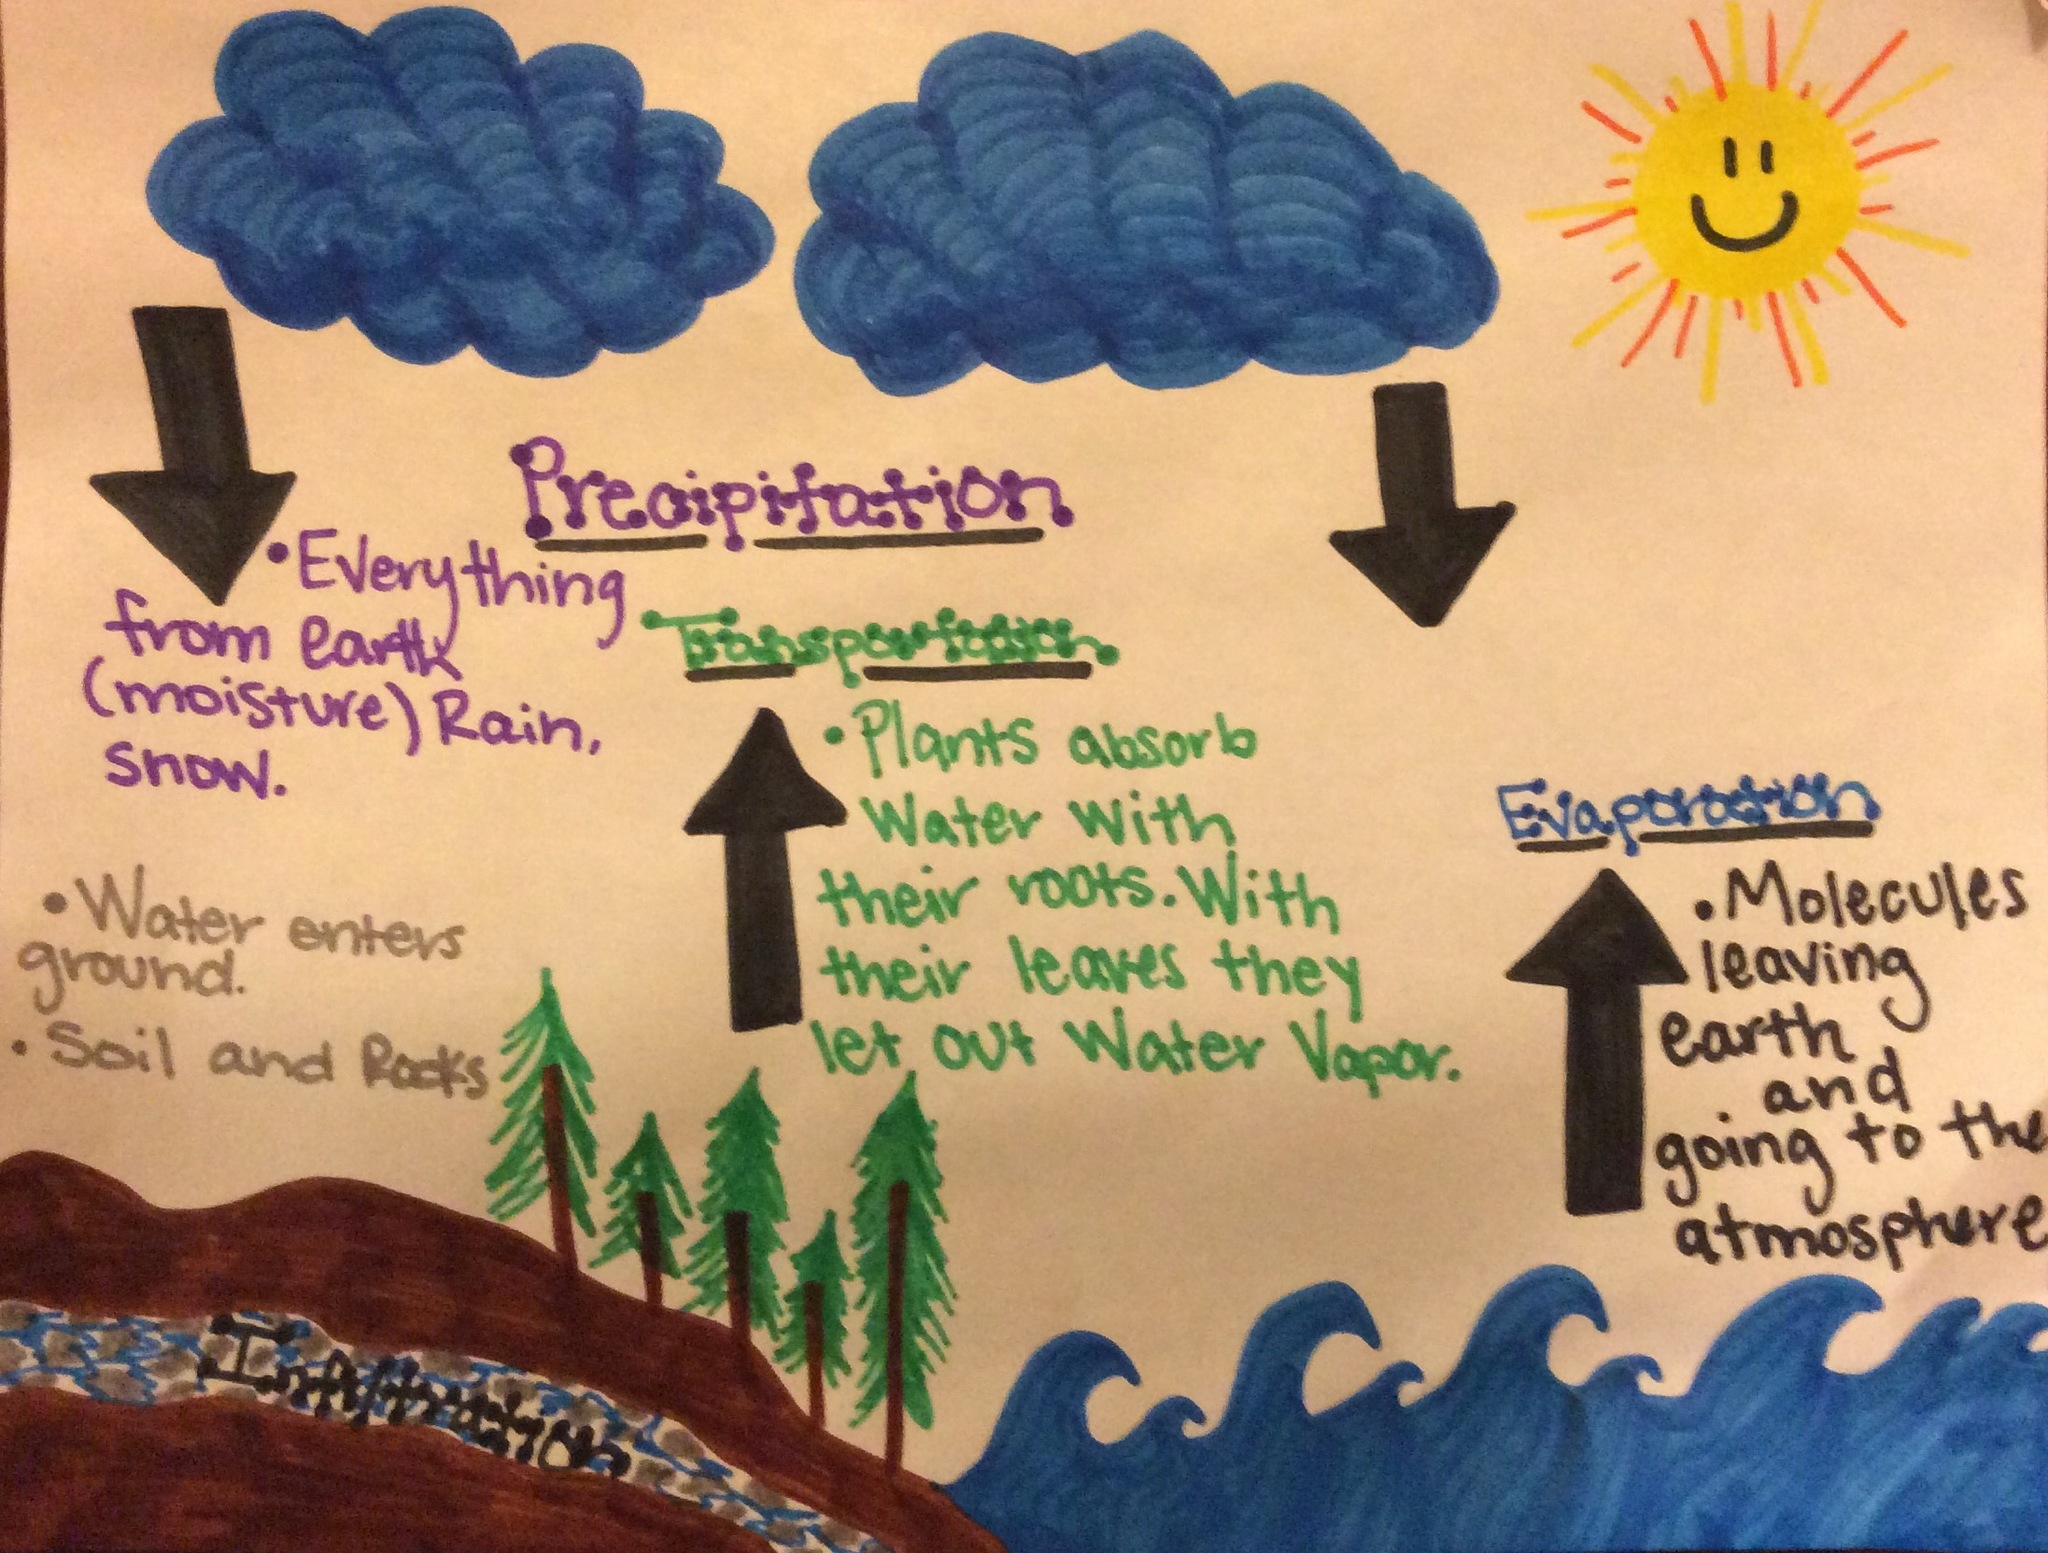 Precipitation
• Everything
from earth
(moisture) Rain,
snow.
Transportation
• Plants absorb
Water with
their roots. With
their leaves they
let out Water Vapor.
Evaporation
• Molecules
leaving
earth
and
going to the
atmosphere
• Water enters
ground.
• Soil and Rocks
Infiltration